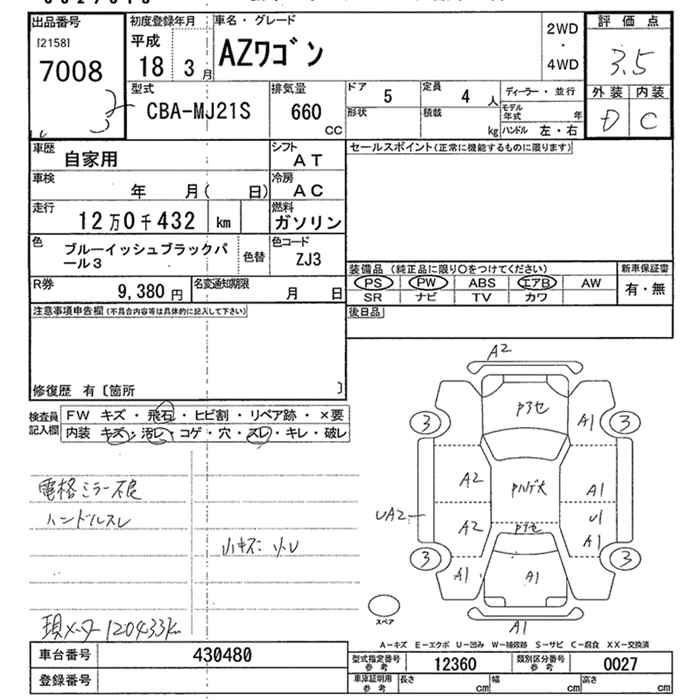 出品番号
[2158]
7008
3
初度登録年月
平成
18 3 月
車名・グレード
AZワゴン
2WD
・
4WD
評価点
3.5
外装 内装
D C
型式
CBA-MJ21S
排気量
660
cc
ドア
5
定員
4 人
形状
積載
kg
ディーラー・並行
モデル年式 年
ハンドル 左・右
車歴
自家用
シフト
AT
車検
年 月( 日)
冷房
AC
走行
12万0千432 km
燃料
ガソリン
色
ブルーイッシュブラックパール3
色替
色コード
ZJ3
R券
9,380 円
名変通知期限
月 日
セールスポイント(正常に機能するものに限ります)
装備品 (純正品に限り○をつけてください)
PS PW ABS エアB AW
SR ナビ TV カワ
新車保証書
有・無
後日品
注意事項申告欄(不具合内容等は具体的に記入して下さい)
修復歴 有〔箇所 〕
検査員記入欄
FW キズ・飛石・ヒビ割・リペア跡・×要
内装 キズ・汚レ・コゲ・穴・スレ・キレ・破レ
電格ミラー不良
ハンドルスレ
小キズ 小U
現メーター120433km
A2
3
3
A1
A2
A1
UA2
A2
U1
A1
3
3
A1
A1
A1
スペア
A-キズ E-エクボ U-凹み W-補修跡 S-サビ C-腐食 XX-交換済
車台番号
430480
登録番号
型式指定番号
参考
12360
類別区分番号
参考
0027
車庫証明用
参考
長さ cm
幅 cm
高さ cm